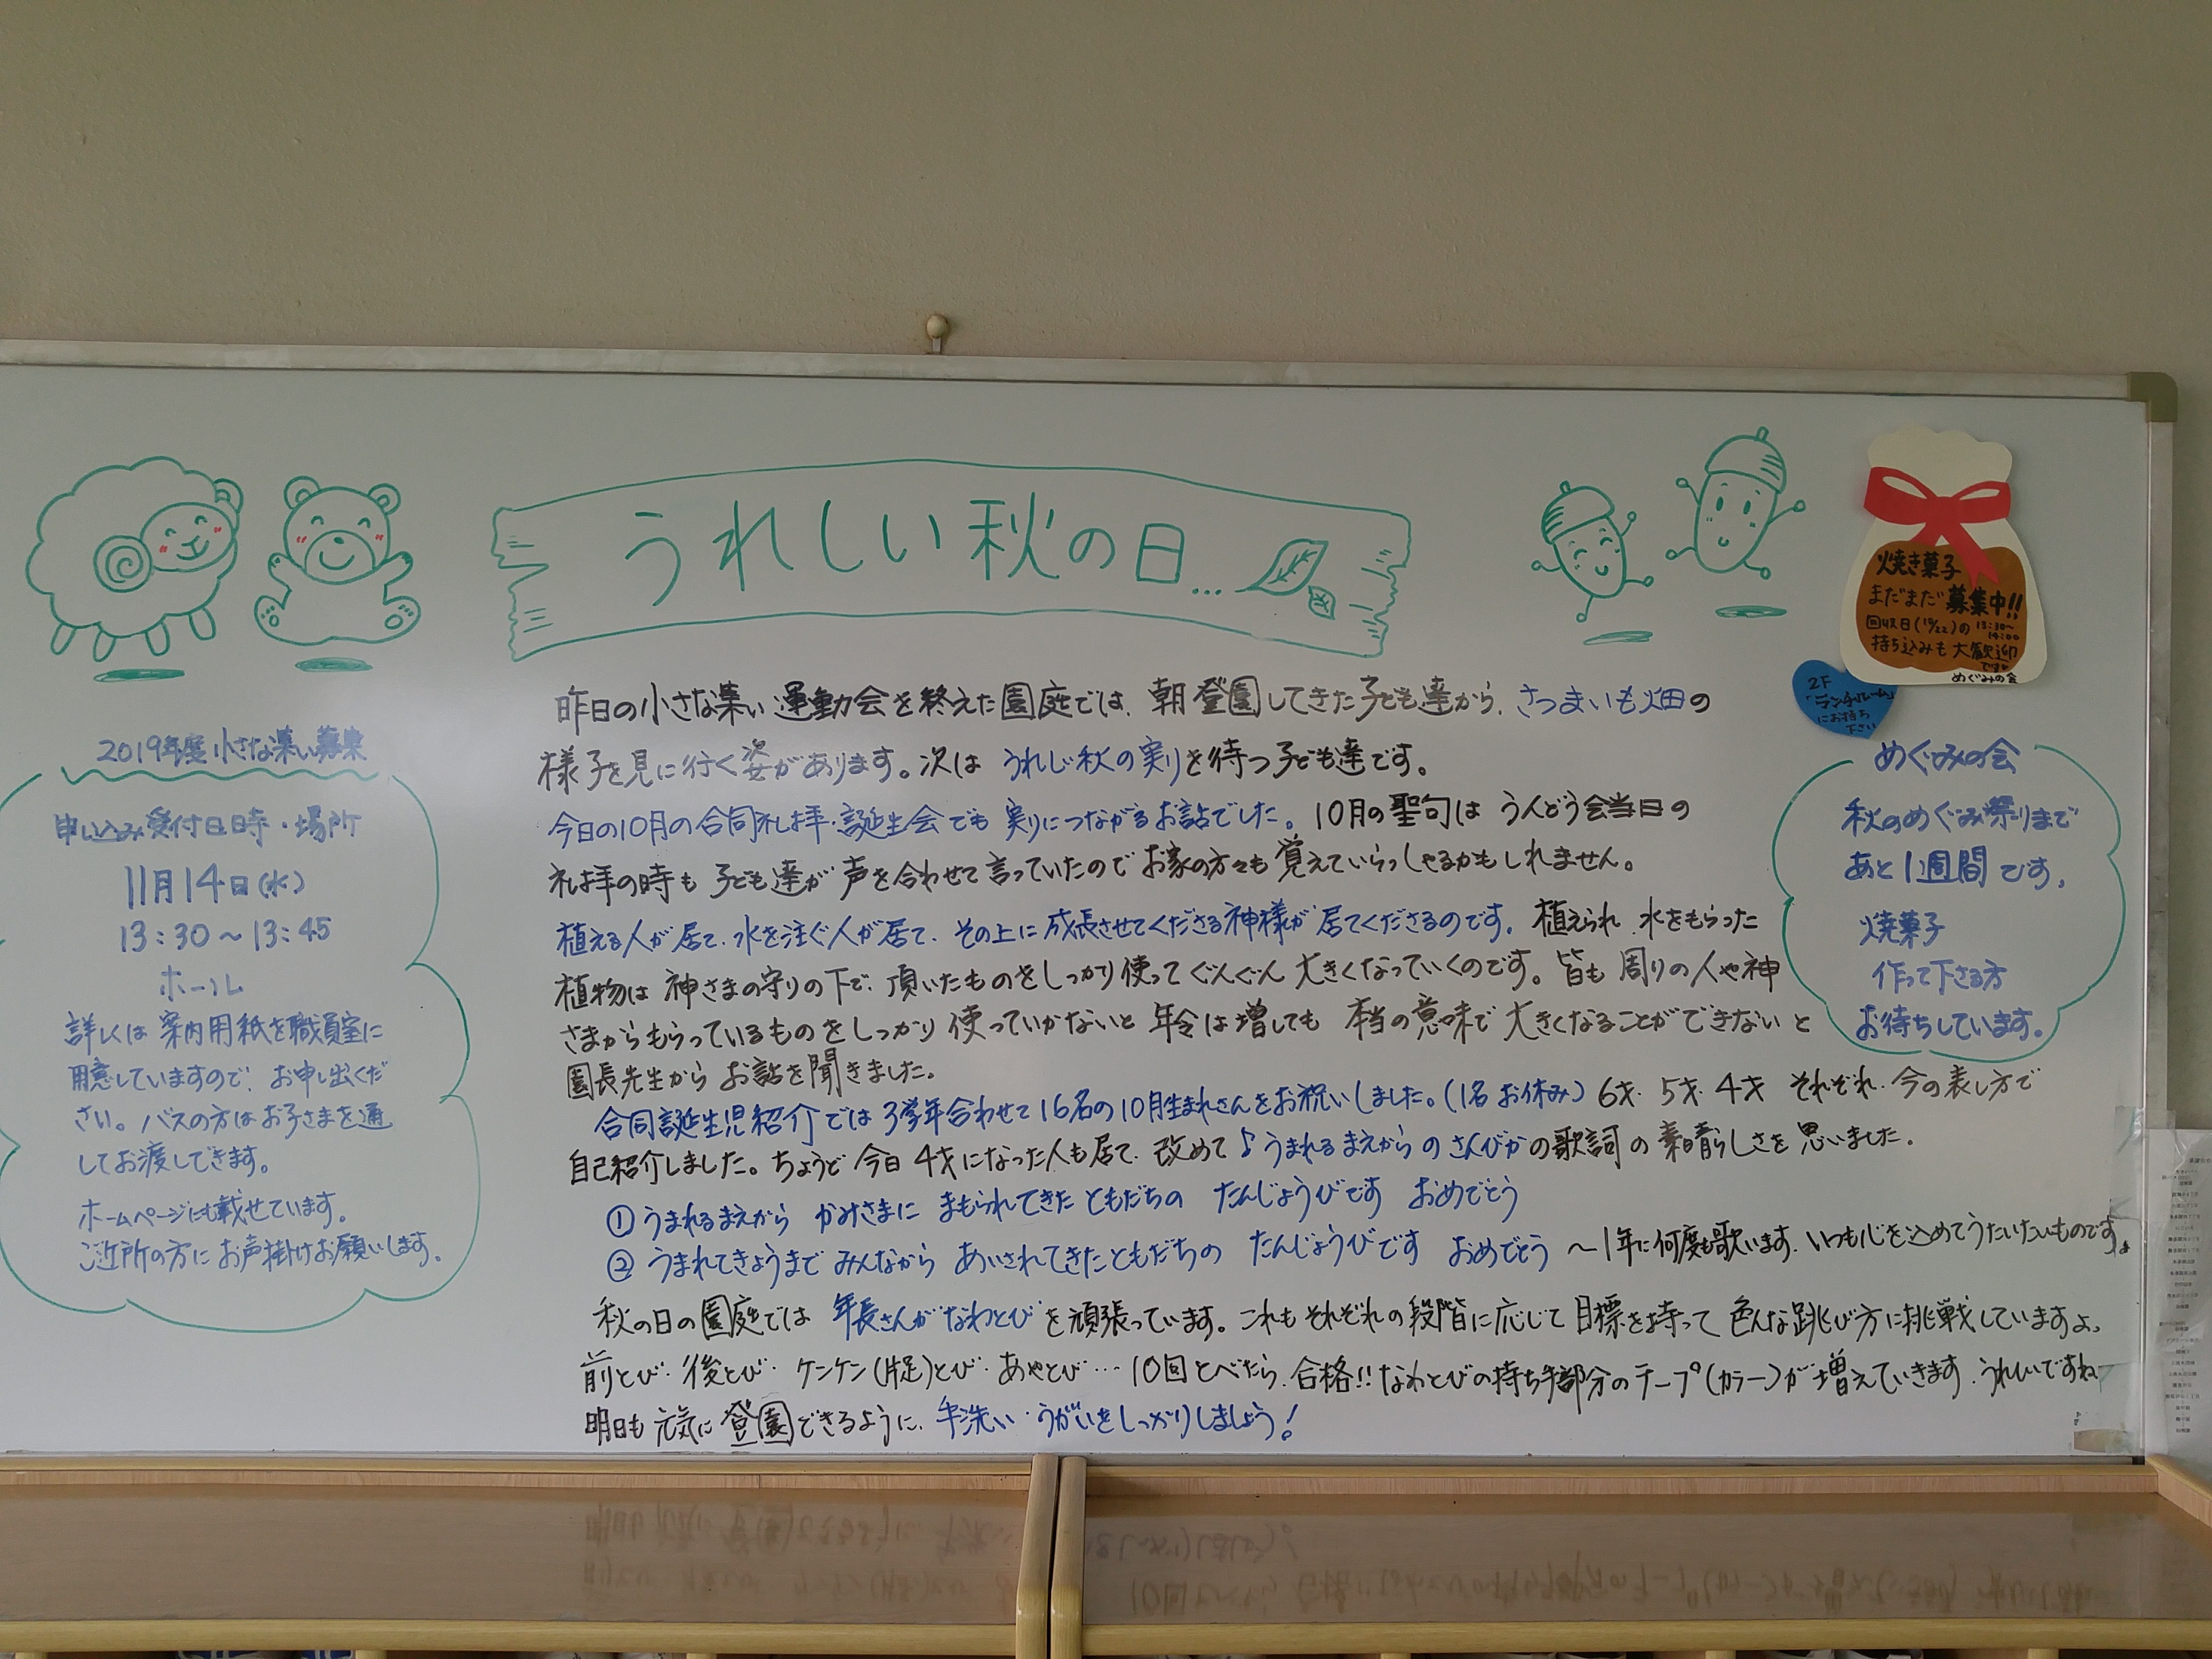 うれしい秋の日…
昨日の小さな集い運動会を終えた園庭では、朝登園してきた子ども達から、さつまいも畑の
様子を見に行く姿があります。次は うれしい秋の実りを待つ子ども達です。
今日の10月の合同礼拝・誕生会でも 実りにつながるお話でした。10月の聖句は うんどう会当日の
礼拝の時も 子ども達が 声を合わせて言っていたので お家の方々も 覚えていらっしゃるかもしれません。
植える人が居て、水を注ぐ人が居て、その上に成長させてくださる神様が 居てくださるのです。植えられ、水をもらった
植物は 神さまの守りの下で、頂いたものをしっかり使って ぐんぐん 大きくなっていくのです。皆も 周りの人や神
さまからもらっているものをしっかり 使っていかないと 年令は増しても 本当の意味で 大きくなることができない と
園長先生から お話を聞きました。
合同誕生児紹介では 3学年合わせて16名の10月生まれさんをお祝いしました。(1名 お休み) 6才・5才・4才 それぞれ、今の表し方で
自己紹介しました。ちょうど 今日 4才になった人も居て、改めて♪うまれるまえから のさんびかの歌詞の 素晴らしさを 思いました。
① うまれるまえから かみさまに まもられてきた ともだちの たんじょうびです おめでとう
② うまれてきょうまで みんなから あいされてきた ともだちの たんじょうびです おめでとう ～1年に何度も歌います。いつも心を込めてうたいたいものです。
秋の日の園庭では 年長さんが なわとびを頑張っています。これも それぞれの段階に応じて 目標を持って 色んな跳び方に挑戦していますよ。
前とび・後とび・ケンケン(片足)とび・あやとび…10回とべたら、合格!! なわとびの持ち手部分のテープ(カラー)が 増えていきます。うれしいですね
明日も 元気に 登園できるように、手洗い・うがいをしっかりしましょう!
2019年度 小さな集い募集
申し込み受付日時・場所
11月14日(水)
13:30～13:45
ホール
詳しくは 案内用紙を職員室に
用意していますので、お申し出くだ
さい。バスの方はお子さまを通
してお渡しできます。
ホームページにも載せています。
ご近所の方に お声掛けお願いします。
焼き菓子
まだまだ募集中!!
回収日(10/22)の 13:30～
14:00
持ち込みも 大歓迎
です♥
めぐみの会
2F
「ランチルーム」
にお持ち
下さい
めぐみの会
秋のめぐみ祭りまで
あと1週間です。
焼菓子
作って下さる方
お待ちしています。